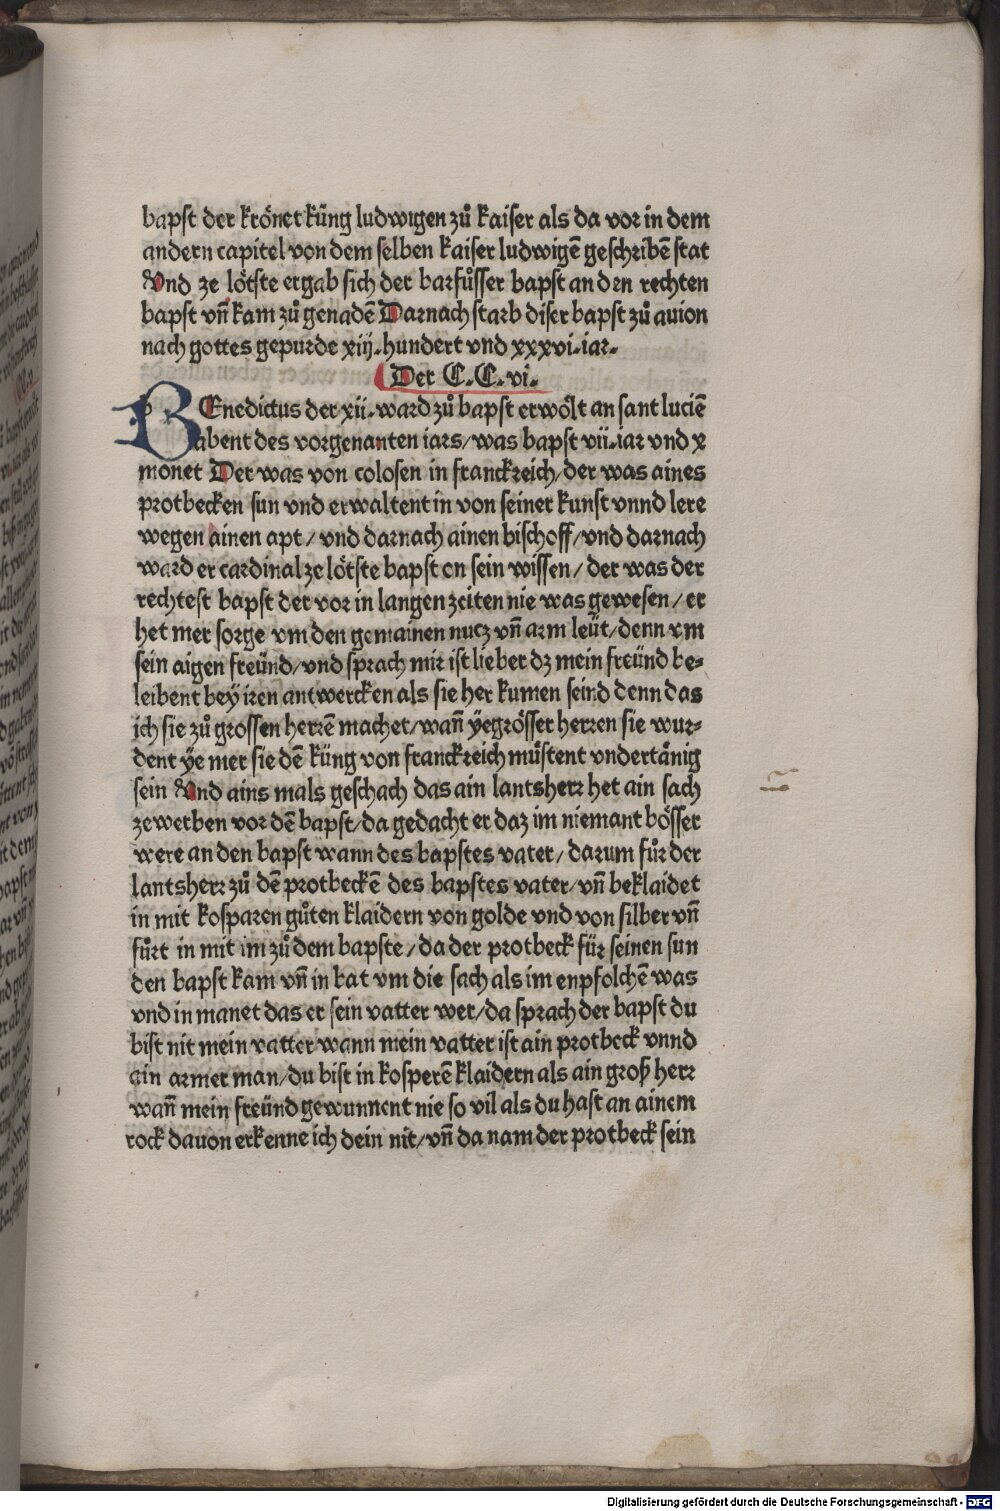 bapst der krönet küng ludwigen zů kaiser als da vor in dem
andern capitel von dem selben kaiser ludwigē geschribē stat
Vnd ze lötste ergab sich der barfůsser bapst an den rechten
bapst vn̄ kam zů genadē Darnach starb diser bapst zů auion
nach gottes gepurde xiij. hundert vnd xxxvi. iar.
Der C.C. vi.
BEnedictus der xii. ward zů bapst erwölt an sant luciē
abent des vorgenanten iars/ was bapst vii. iar vnd x
monet Der was von colosen in franckreich/ der was aines
protbecken sun vnd erwaltent in von seiner kunst vnnd lere
wegen ainen apt/ vnd darnach ainen bischoff/ vnd darnach
ward er cardinal ze lötste bapst on sein wissen/ der was der
rechtest bapst der vor in langen zeiten nie was gewesen/ er
het mer sorge vm den gemainen nucz vn̄ arm leüt/ denn vm
sein aigen freünd/ vnd sprach mir ist lieber dz mein freünd be-
leibent beÿ iren antwercken als sie her kumen seind denn das
ich sie zů grossen herrē machet/ wan̄ ÿe grösser herren sie wur-
dent ÿe mer sie dē küng von franckreich můstent vndertänig
sein Vnd ains mals geschach das ain lantsherr het ain sach
ze werben vor dē bapst/ da gedacht er daz im niemant bösser
were an den bapst wann des bapstes vater/ darum fůr der
lantsherr zů dē protbeckē des bapstes vater/ vn̄ beklaidet
in mit kosparen gůten klaidern von golde vnd von silber vn̄
fůrt in mit im zů dem bapste/ da der protbeck für seinen sun
den bapst kam vn̄ in bat vm die sach als im enpfolchē was
vnd in manet das er sein vatter wer/ da sprach der bapst du
bist nit mein vatter wann mein vatter ist ain protbeck vnnd
ain armer man/ du bist in kosperē klaidern als ain groß herr
wan̄ mein freünd gewunnent nie so vil als du hast an ainem
rock dauon erkenne ich dein nit/ vn̄ da nam der protbeck sein
Digitalisierung gefördert durch die Deutsche Forschungsgemeinschaft - DFG